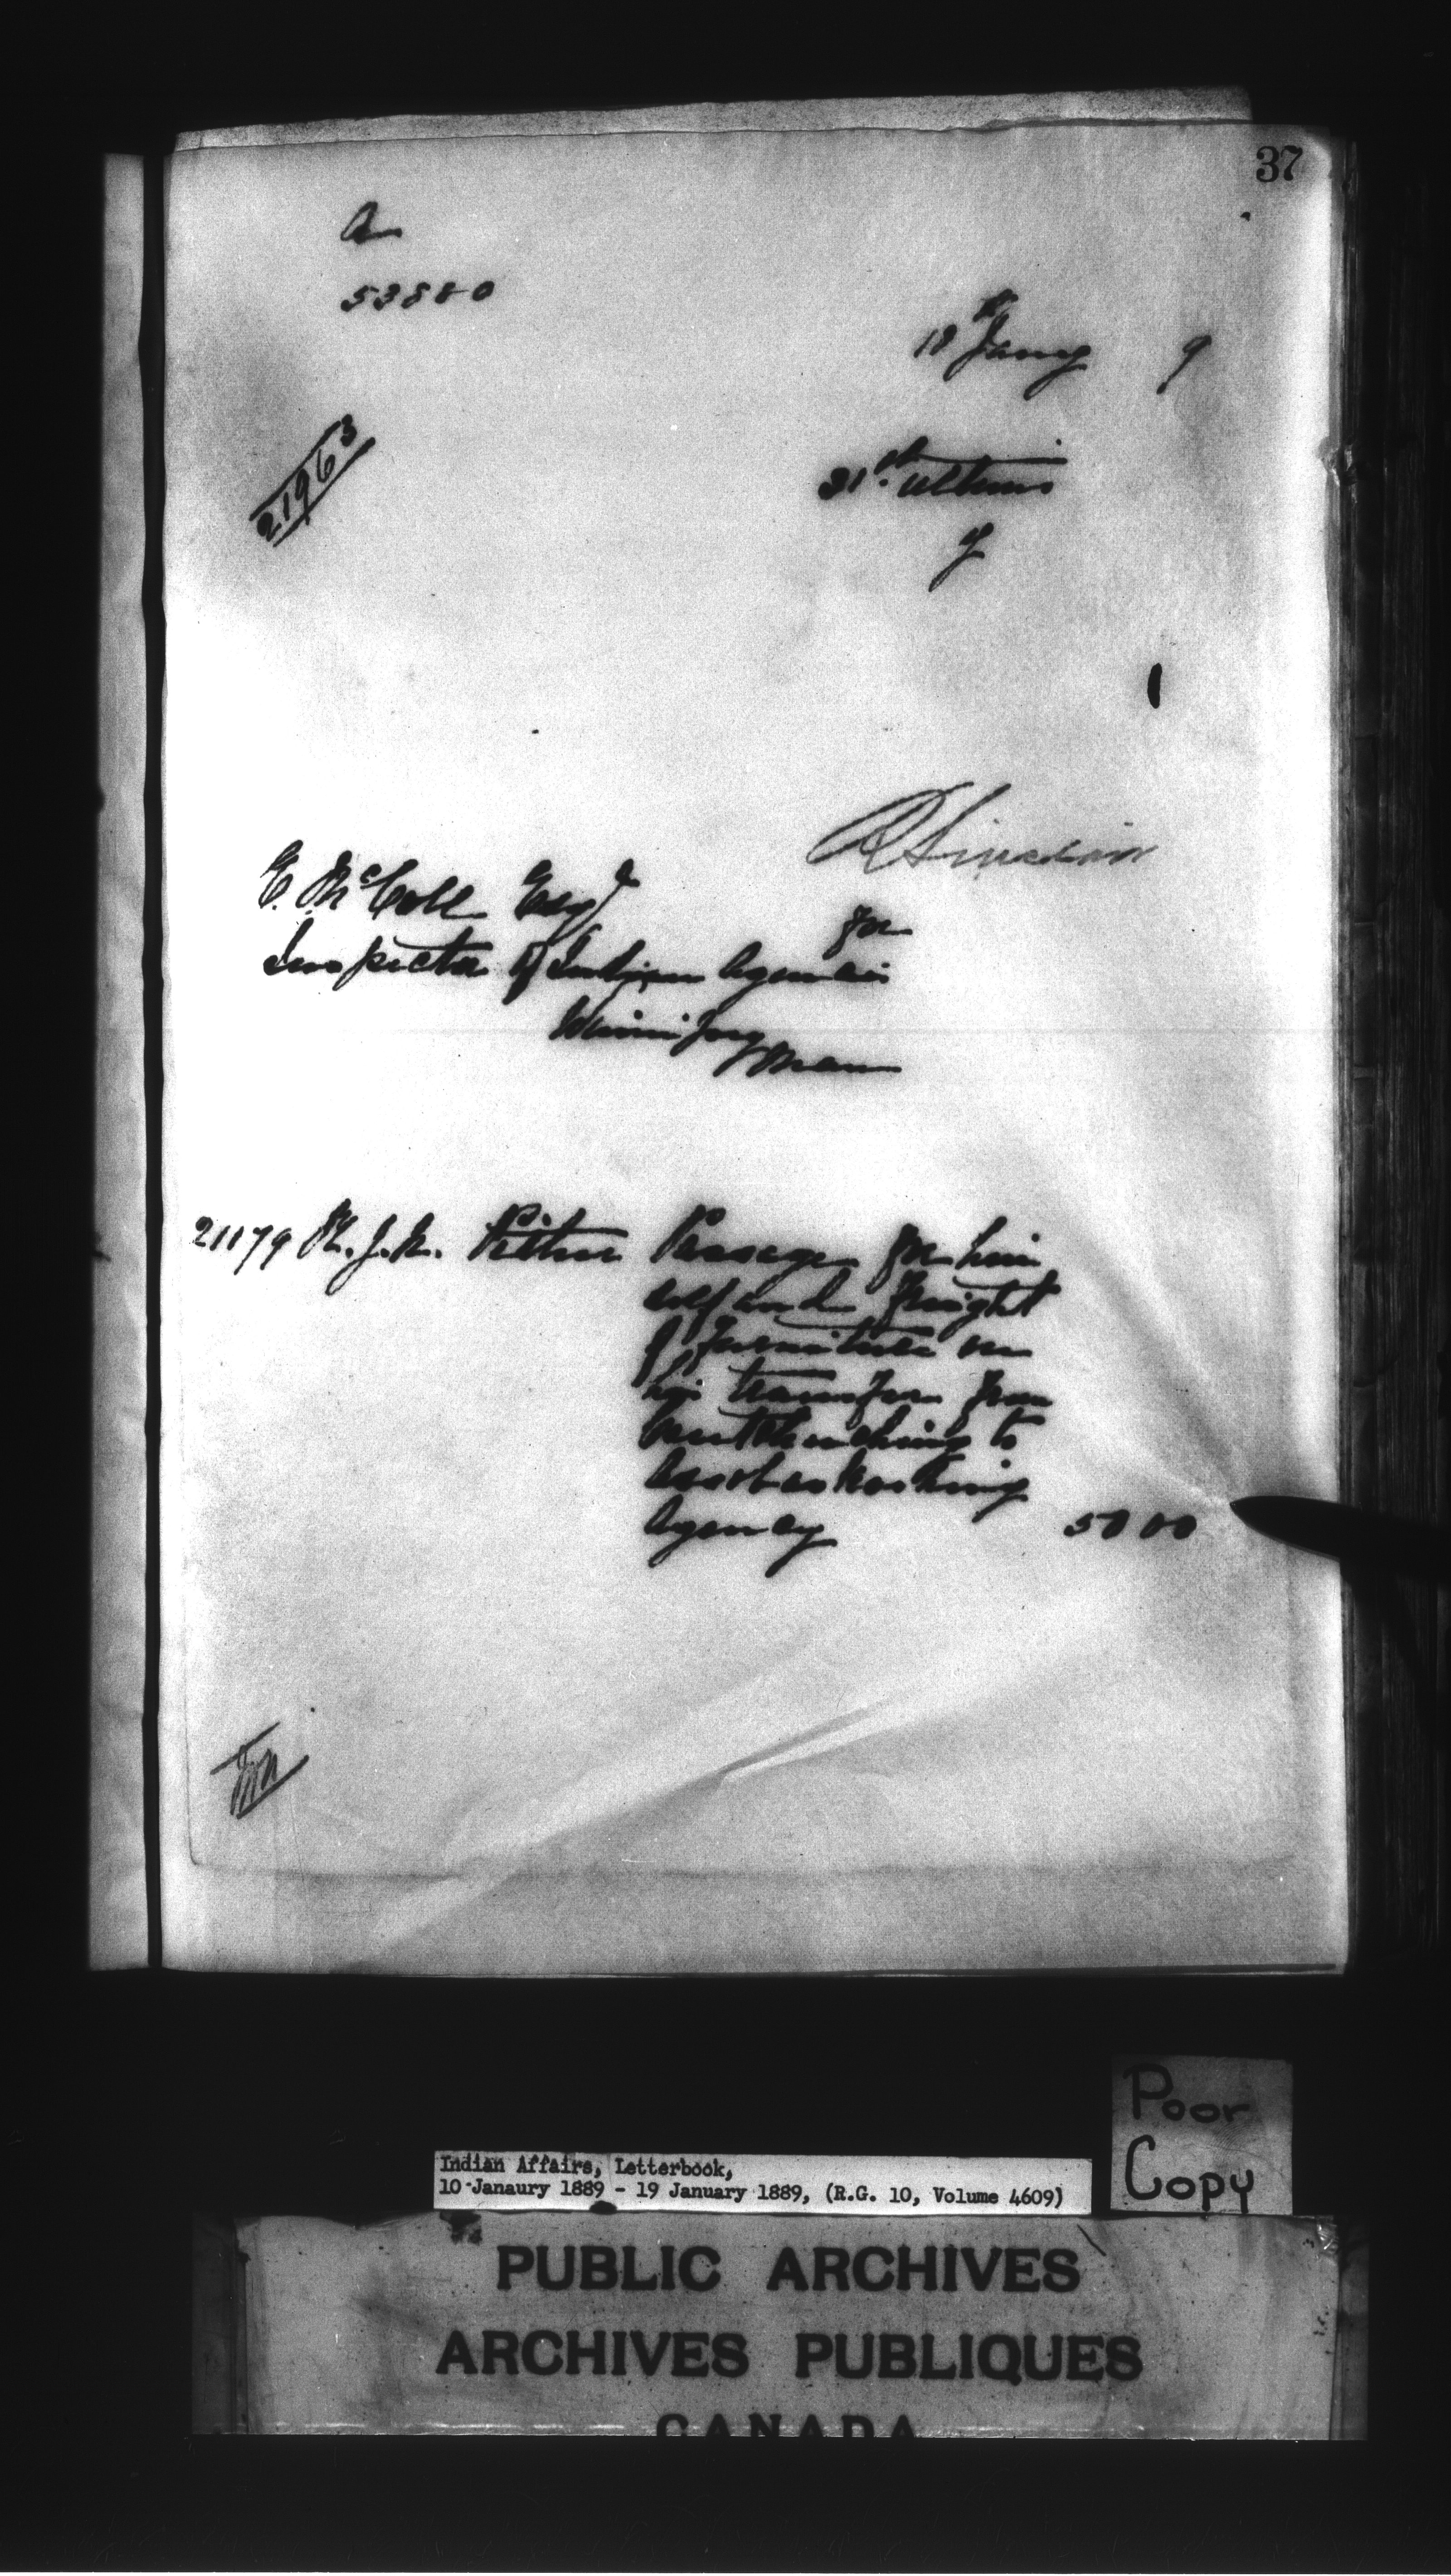 37
A
53880
18th Jany 9
21963
31st ultimo
of
R Sinclair
E. McColl Esqr
for
Inspector of Indian Agencies
Winnipeg
Man
21179 R. J. N. Pither Passage for him
self and freight
of furniture on
his transfer from
to
Assabaskashing
Agency 50 00
Poor
Copy
Indian Affairs, Letterbook,
10 Janaury 1889 - 19 January 1889, (R.G. 10, Volume 4609)
PUBLIC ARCHIVES
ARCHIVES PUBLIQUES
CANADA